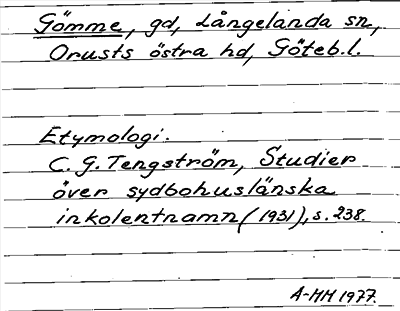 Gömme, gd, Långelanda sn,
Orusts östra hd, Göteb.l.
Etymologi.
C. G. Tengström, Studier
över sydbohuslänska
inkolentnamn (1931), s. 238.
A-MH 1977.